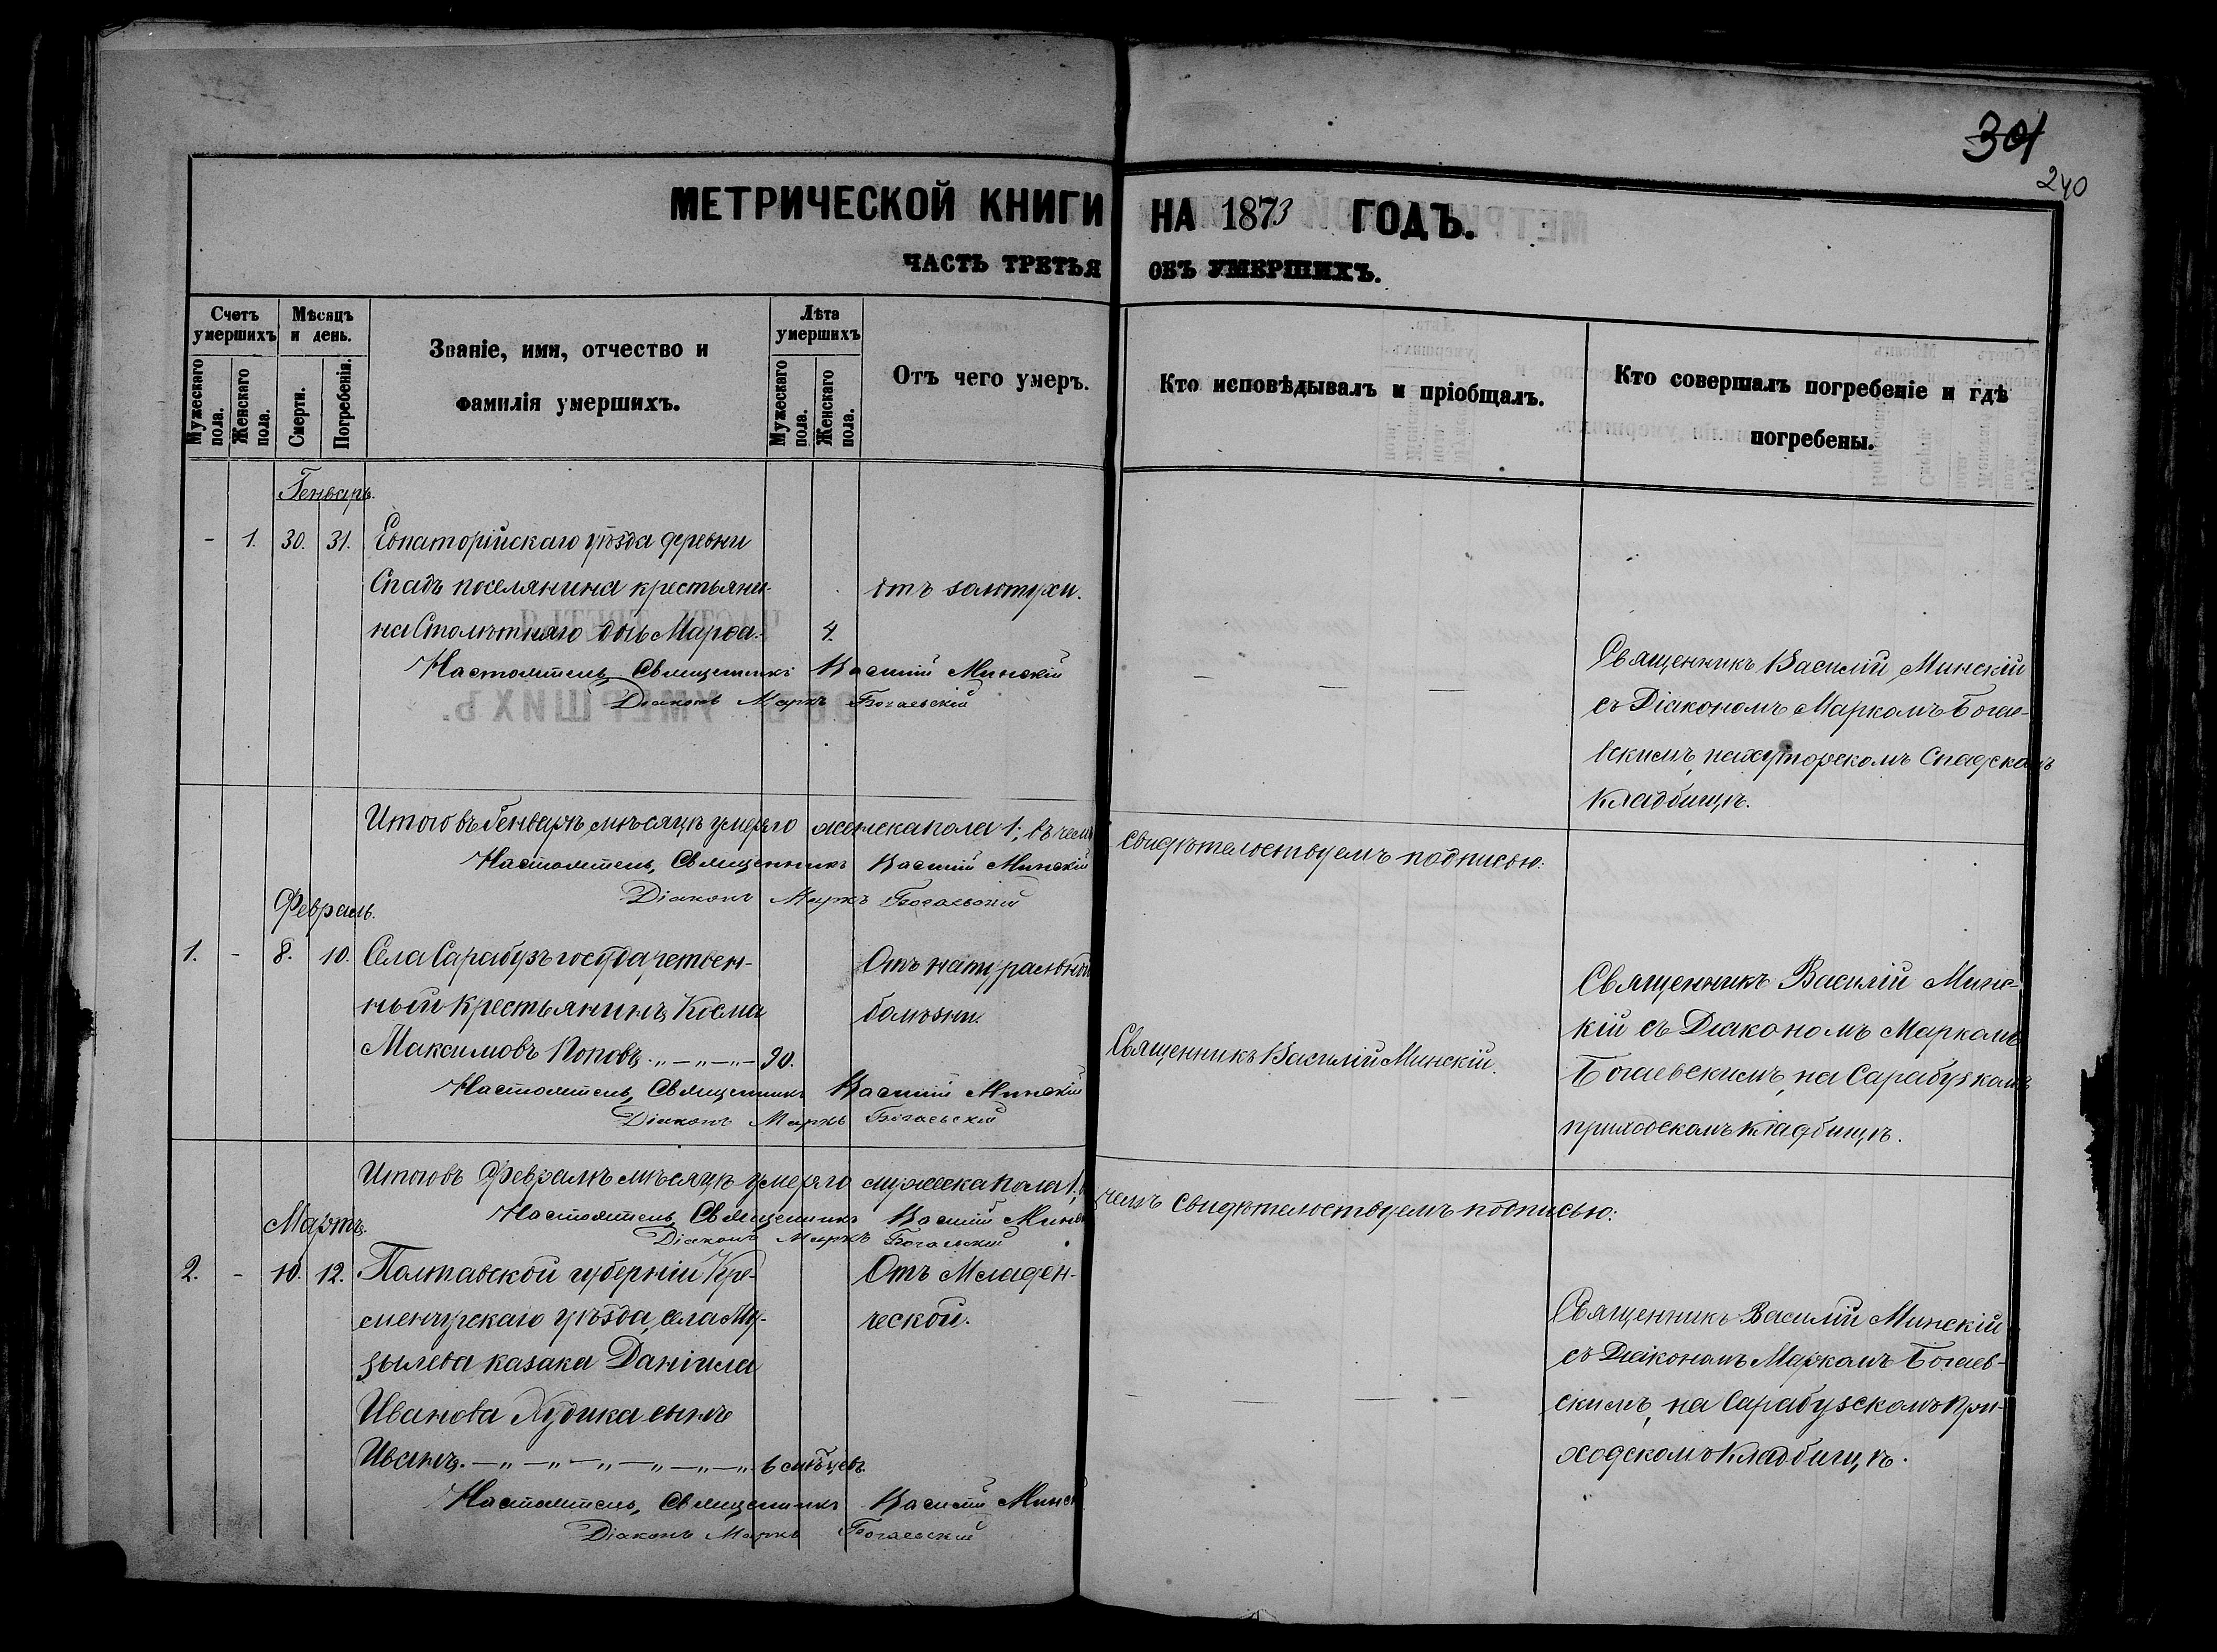 301
240
МЕТРИЧЕСКОЙ КНИГИ НА 1873 ГОДЪ.
ЧАСТЬ ТРЕТЬЯ ОБЪ УМЕРШИХЪ.
Счетъ умершихъ
Мужескаго пола.
Женскаго пола.
Мѣсяцъ и день.
Смерти.
Погребенія.
Званіе, имя, отчество и
фамилія умершихъ.
Лѣта умершихъ
Мужескаго пола.
Женскаго пола.
Отъ чего умеръ.
Кто исповѣдывалъ и пріобщалъ.
Кто совершалъ погребеніе и гдѣ
погребены.
Генварь.
- 1. 30. 31. Евпаторійскаго уѣзда деревни
Спадъ поселянина крестьяни- отъ золотухи.
на Столѣтняго дочь Марѳа. 4.
Настоятель, Священникъ Василій Минскій
Діаконъ Маркъ Богаевскій
Священникъ Василій Минскій
съ Діакономъ Маркомъ Богае-
вскимъ, на хуторскомъ Спадскомъ
кладбищѣ.
Итого въ Генварѣ мѣсяцѣ умерло женска пола 1; въ чемъ свидѣтельствуемъ подписью:
Настоятель, Священникъ Василій Минскій
Діаконъ Маркъ Богаевскій
Февраль.
1. - 8. 10. Села Сарабузъ государствен- Отъ натуральной
ный крестьянинъ Косма болѣзни.
Максимовъ Поповъ. -„-„-„- 90.
Настоятель, Священникъ Василій Минскій
Діаконъ Маркъ Богаевскій
Священникъ Василій Минскій.
Священникъ Василій Минс-
кій съ Діакономъ Маркомъ
Богаевскимъ, на Сарабузкомъ
приходскомъ кладбищѣ.
Итого въ Февралѣ мѣсяцѣ умерло мужеска пола 1; въ чемъ свидѣтельствуемъ подписью:
Настоятель, Священникъ Василій Минскій
Діаконъ Маркъ Богаевскій
Мартъ.
2. - 10. 12. Полтавской губерніи Кре- Отъ Младен-
менчугскаго уѣзда, села Му- ческой.
зылева казака Даніила
Иванова Худика сынъ
Иванъ. -„-„-„-„-„-„- 6 мѣсцевъ.
Настоятель, Священникъ Василій Минск
Діаконъ Маркъ Богаевскій
Священникъ Василій Минскій
съ Діакономъ Маркомъ Богаев-
скимъ, на Сарабузскомъ при-
ходскомъ кладбищѣ.